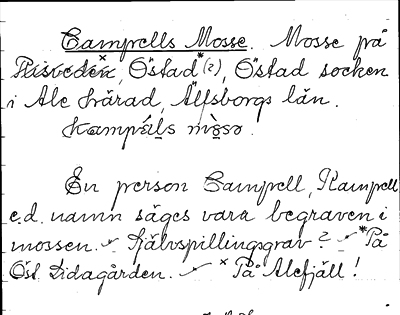 Camprells Mosse. Mosse på
Risveden ˣ, Östad *(?), Östad socken
i Ale härad, Älfsborgs län.
Kampräls mòsə.
En person Camprell, Kamprell
e.d. namn säges vara begraven i
mossen. Självspillingsgrav? *På
Öst. Lidagården. ˣ På Alefjäll!